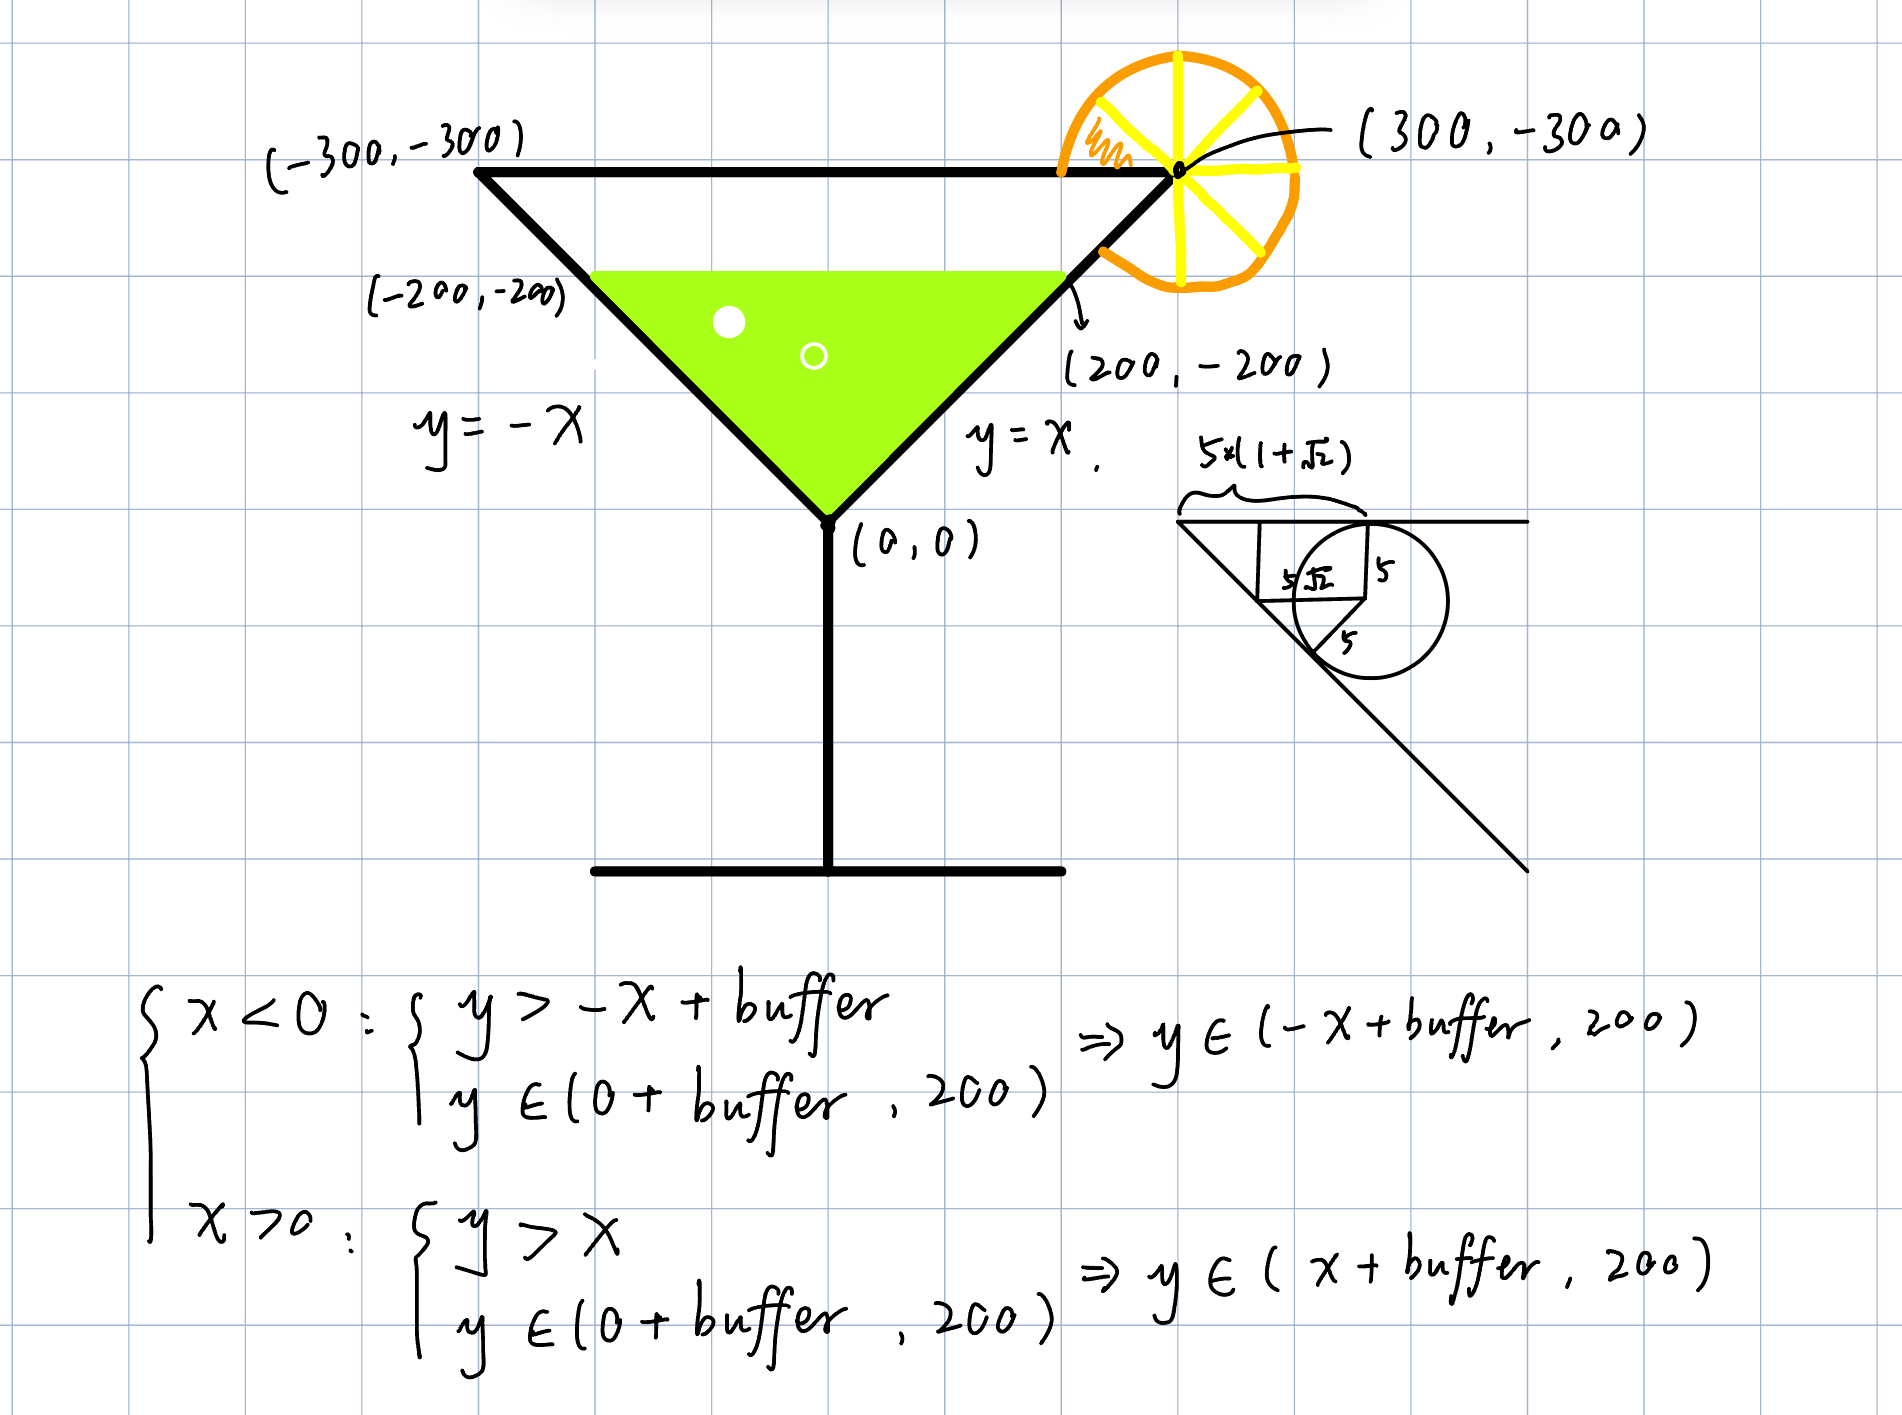 (-300, -300)
(300, -300)
(-200, -200)
(200, -200)
y = -x
y = x.
5*(1+√2)
(0, 0)
5√2
5
5
x < 0 : { y > -x + buffer ⇒ y ∈ (-x + buffer, 200)
y ∈ (0 + buffer, 200)
x > 0 : { y > x ⇒ y ∈ (x + buffer, 200)
y ∈ (0 + buffer, 200)